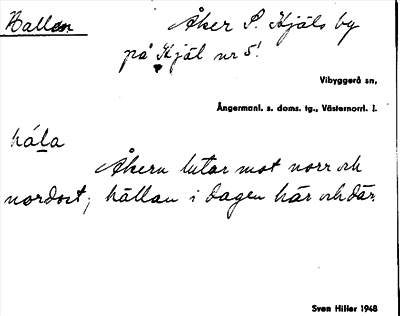 Hallan
Åker S. Kjäls by
på Kjäl nr 5!
Vibyggerå sn,
Ångermanl. s. doms. tg., Västernorrl. l.
hála
Åkern lutar mot norr och
nordost; hällan i dagen här och där.
Sven Hiller 1948